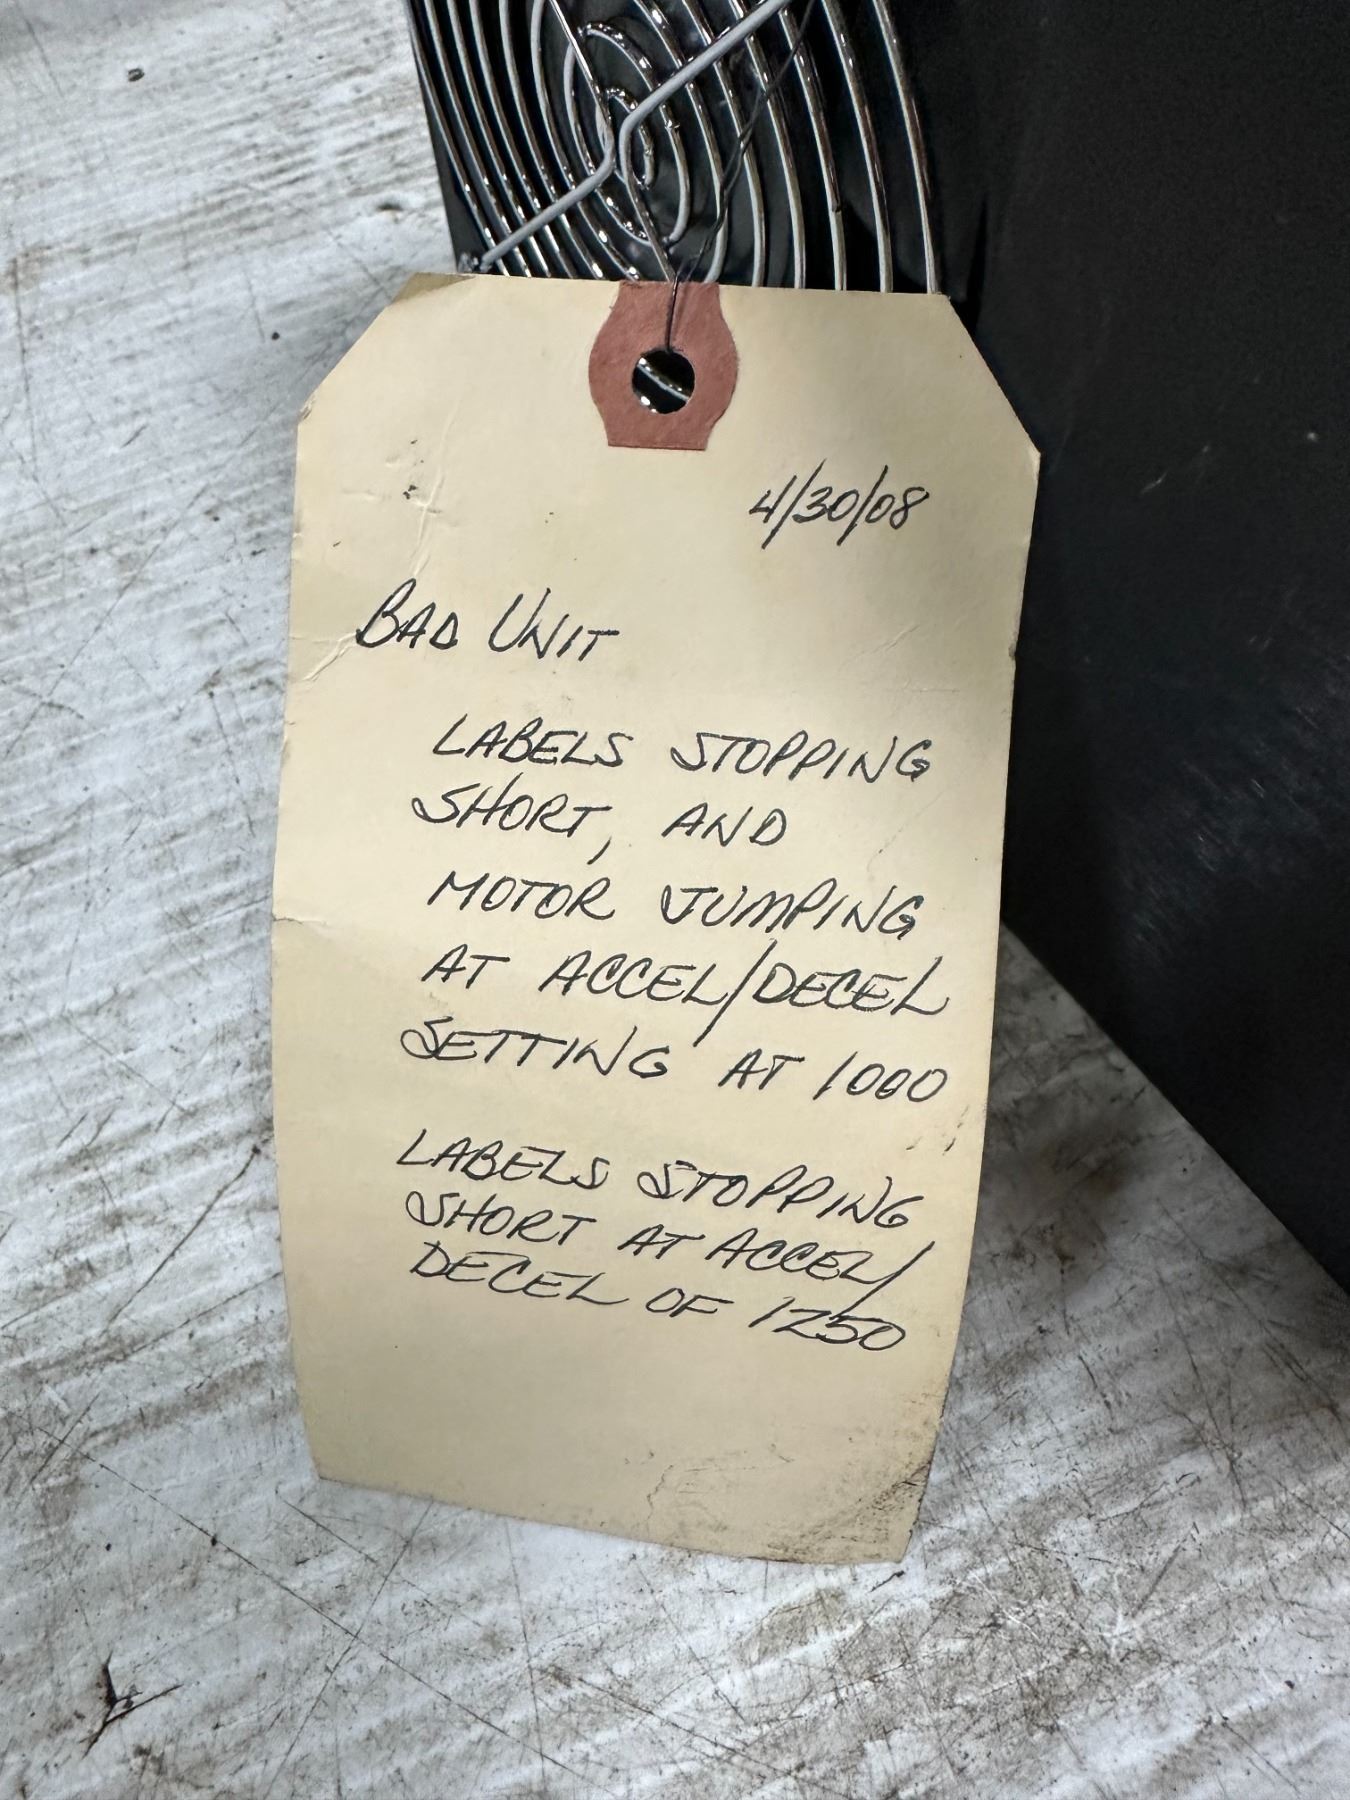 4/30/08
BAD UNIT
LABELS STOPPING
SHORT, AND
MOTOR JUMPING
AT ACCEL/DECEL
SETTING AT 1000
LABELS STOPPING
SHORT AT ACCEL/
DECEL OF 1250